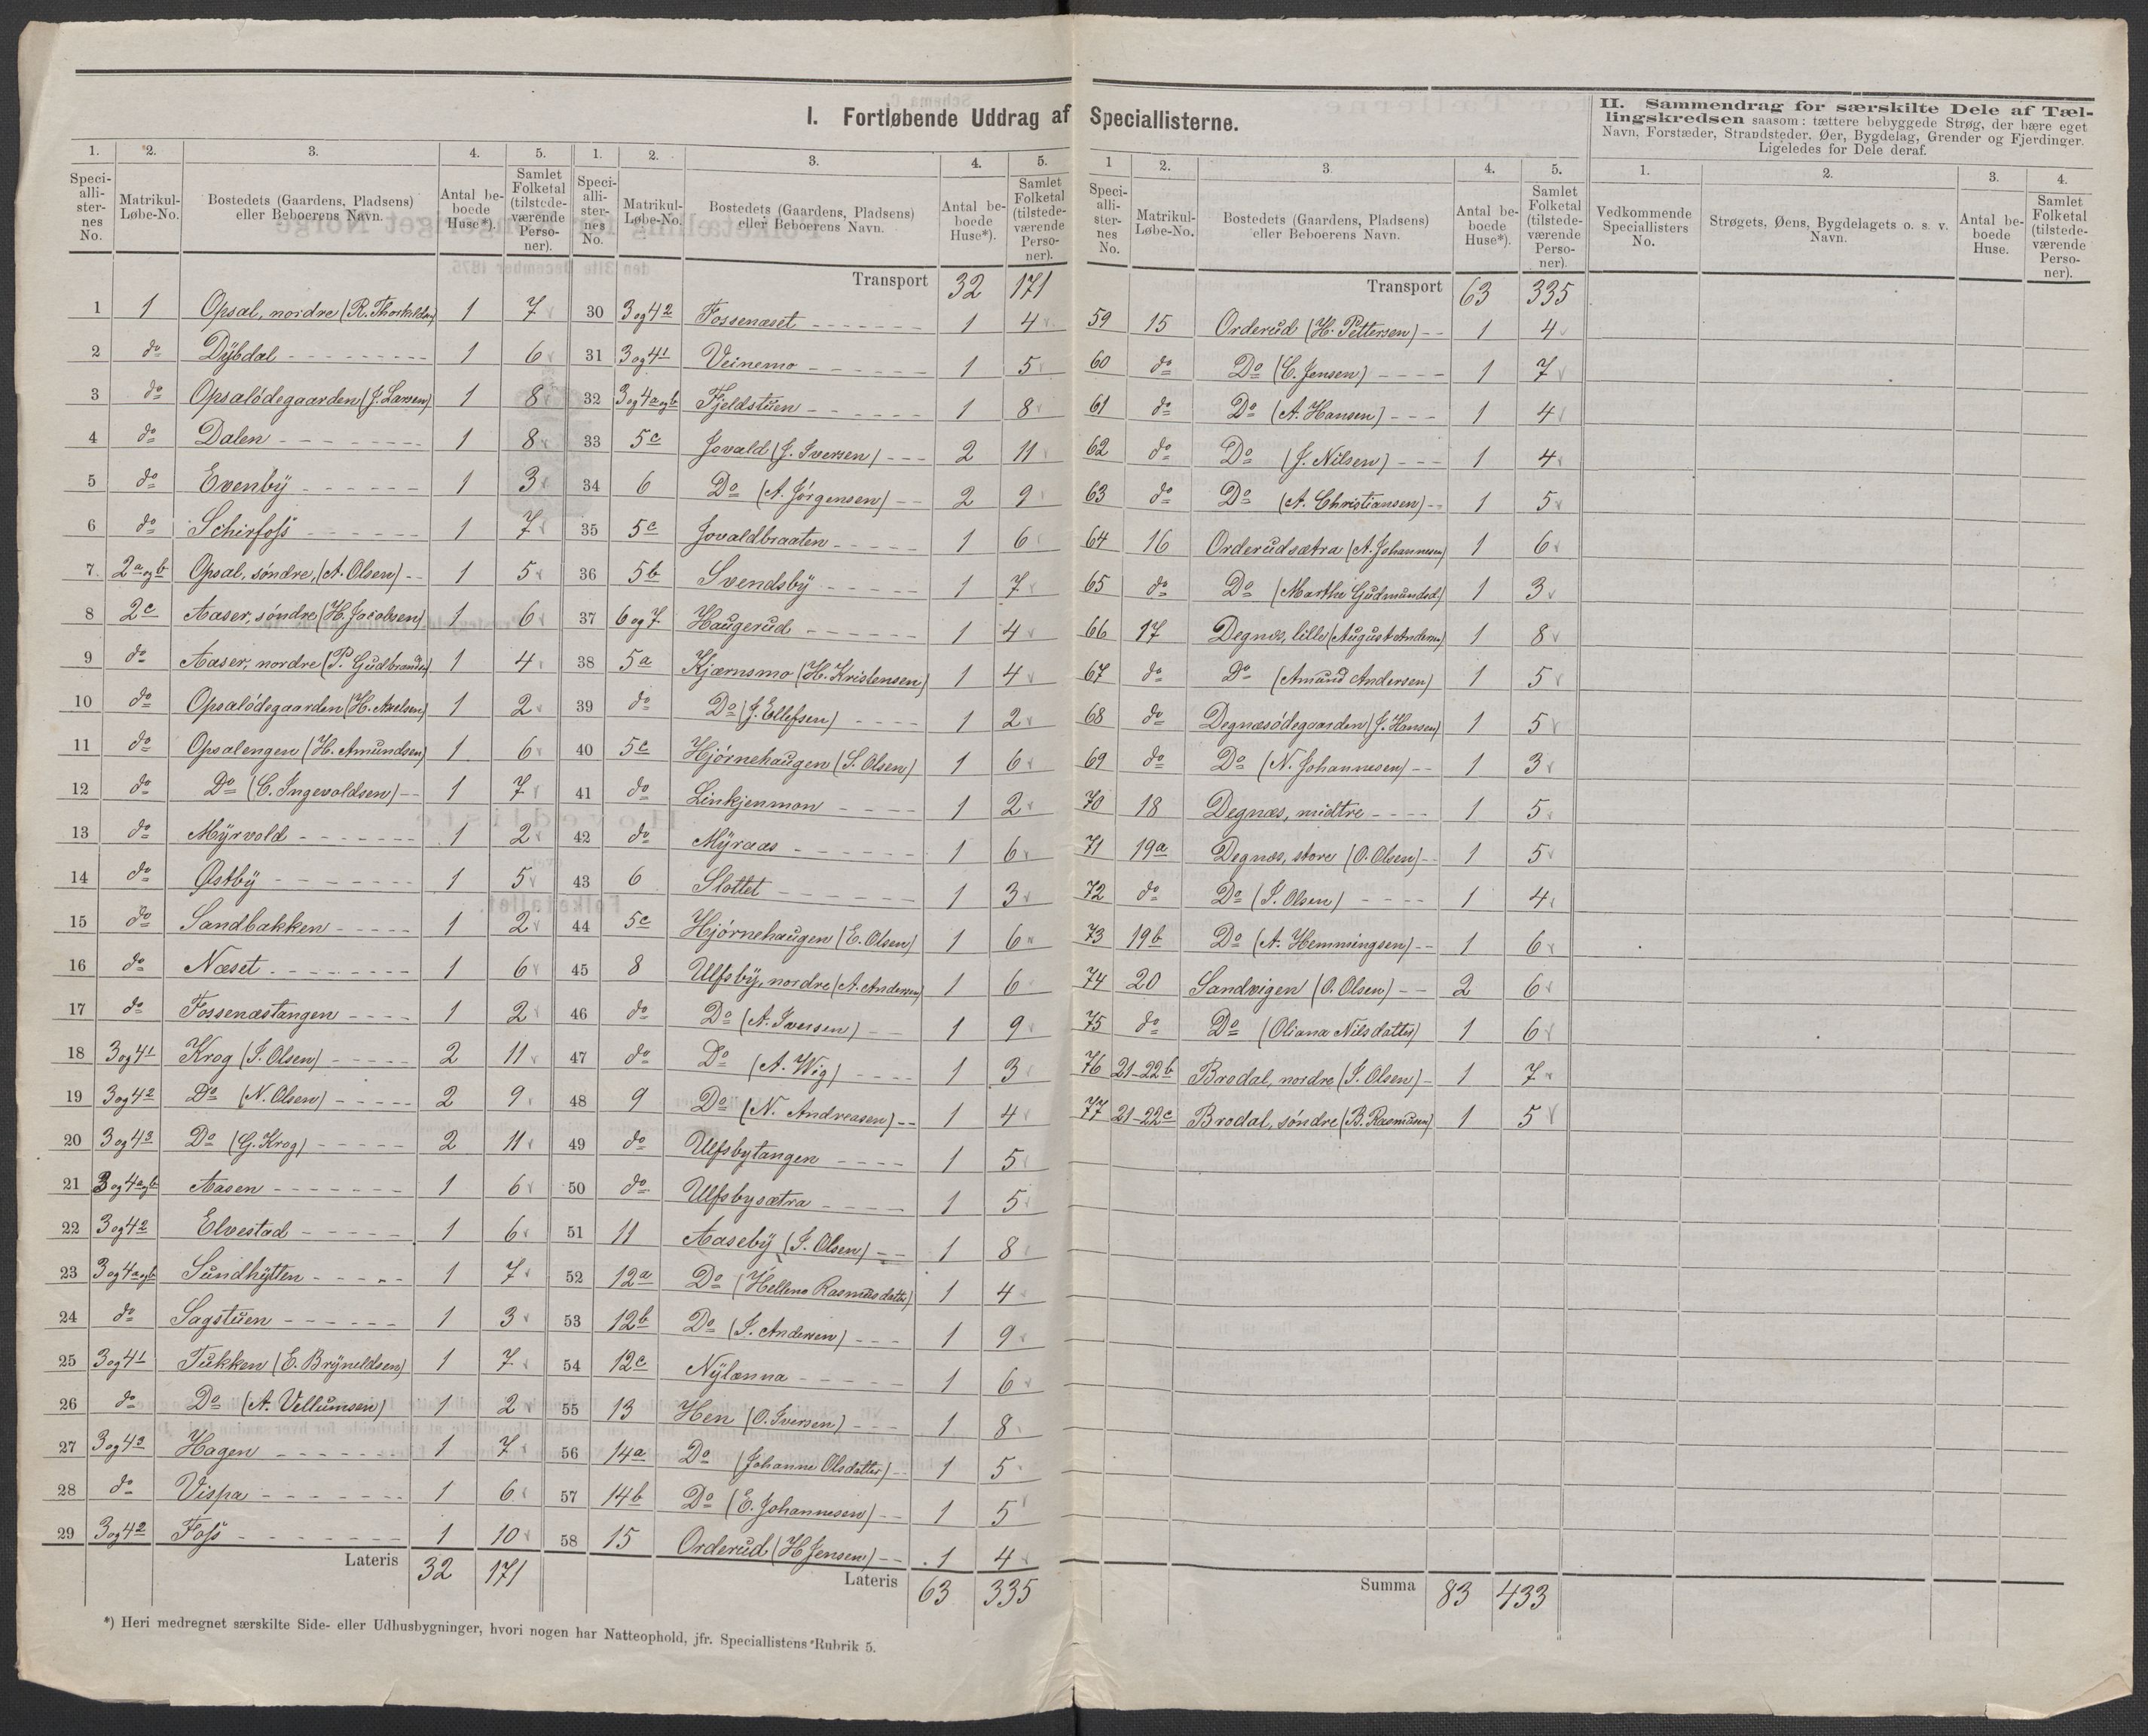 I. Fortløbende Uddrag af Speciallisterne.
1. 2. 3. 4. 5.
Specialli-
ster-
nes
No.
Matrikul-
Løbe-No.
Bostedets (Gaardens, Pladsens)
eller Beboerens Navn.
Antal be-
boede
Huse*).
Samlet
Folketal
(tilstede-
værende
Perso-
ner).
1 1 Opsal, nordre (R. Thorkildsen) 1 7
2 do Dÿbdal 1 6
3 do Opsalödegaarden (J. Larsen) 1 8
4 do Dalen 1 8
5 do Evenbÿ 1 3
6 do Schirfoss 1 7
7 2a og b Opsal, søndre, (A. Olsen) 1 5
8 2c Aaser, søndre (H. Jacobsen) 1 6
9 do Aaser, nordre (P. Gudbrandsen) 1 4
10 do Opsalödegaarden (H. Axelsen) 1 2
11 do Opsalengen (H. Amundsen) 1 6
12 do Do (C. Ingevoldsen) 1 7
13 do Mÿrvold 1 2
14 do Østbÿ 1 5
15 do Sandbakken 1 2
16 do Næset 1 6
17 do Fossenæstangen 1 2
18 3 og 41 Krog (J. Olsen) 2 11
19 3 og 42 Do (N. Olsen) 2 9
20 3 og 43 Do (G. Krog) 2 11
21 3 og 4a og b Aasen 1 6
22 3 og 42 Elvestad 1 6
23 3 og 4a og b Sundhÿtten 1 7
24 do Sagstuen 1 3
25 3 og 41 Tukken (E. Brÿneldsen) 1 7
26 do Do (A. Vellumsen) 1 2
27 3 og 43 Hagen 1 7
28 do Vispa 1 6
29 3 og 42 Foss 1 10
Lateris 32 171
1. 2. 3. 4. 5.
Speci-
alli-
ster-
nes
No.
Matrikul-
Løbe-No.
Bostedets (Gaardens, Pladsens)
eller Beboerens Navn.
Antal be-
boede
Huse*).
Samlet
Folketal
(tilstede-
værende
Perso-
ner).
Transport 32 171
30 3 og 42 Fossenæset 1 4
31 3 og 41 Veinemo 1 5
32 3 og 4a og b Fjeldstuen 1 8
33 5c Jovald (J. Iversen) 2 11
34 6 Do (A. Jörgensen) 2 9
35 5c Jovaldbraaten 1 6
36 5b Svendsbÿ 1 7
37 6 og 7 Haugerud 1 4
38 5a Kjærnsmo (H. Kristensen) 1 4
39 do Do (J. Ellefsen) 1 2
40 5c Hjörnehaugen (S. Olsen) 1 6
41 do Linkjenmon 1 2
42 do Mÿraas 1 6
43 6 Slottet 1 3
44 5c Hjörnehaugen (E. Olsen) 1 6
45 8 Ulfsbÿ, nordre (A. Andersen) 1 6
46 do Do (A. Iversen) 1 9
47 do Do (A. Wig) 1 3
48 9 Do (N. Andreasen) 1 4
49 do Ulfsbytangen 1 5
50 do Ulfsbysætra 1 5
51 11 Aasebÿ (J. Olsen) 1 8
52 12a Do (Hellene Rasmusdatter) 1 4
53 12b Do (J. Andersen) 1 9
54 12c Nÿlænna 1 6
55 13 Hen (O. Iversen) 1 8
56 14a Do (Johanne Olsdatter) 1 5
57 14b Do (E. Johannesen) 1 5
58 15 Orderud (H Jensen) 1 4
Lateris 63 335
1 2. 3. 4. 5.
Speci-
alli-
ster-
nes
No.
Matrikul-
Løbe-No.
Bostedets (Gaardens, Pladsens)
eller Beboerens Navn.
Antal be-
boede
Huse*).
Samlet
Folketal
(tilstede-
værende
Perso-
ner).
Transport 63 335
59 15 Orderud (H. Pettersen) 1 4
60 do Do (C. Jensen) 1 7
61 do Do (A. Hansen) 1 4
62 do Do (J. Nilsen) 1 4
63 do Do (A. Christiansen) 1 5
64 16 Orderudsætra (A. Johannesen) 1 6
65 do Do (Marthe Gudmundsd) 1 3
66 17 Degnæs, lille (August Andersen) 1 8
67 do Do (Amund Andersen) 1 5
68 do Degnæsødegaarden (J. Hansen) 1 5
69 do Do (N. Johannesen) 1 3
70 18 Degnæs, midtre 1 5
71 19a Degnæs, store (O. Olsen) 1 5
72 do Do (J. Olsen) 1 4
73 19b Do (A. Hemmingsen) 1 6
74 20 Sandvigen (O. Olsen) 2 6
75 do Do (Oliana Nilsdatter) 1 6
76 21-22b Brodal, nordre (J. Olsen) 1 7
77 21-22c Brodal, søndre (B. Rasmusen) 1 5
Summa 83 433
II. Sammendrag for særskilte Dele af Tæl-
lingskredsen saasom: tættere bebyggede Strøg, der bære eget
Navn, Forstæder, Strandsteder, Øer, Bygdelag, Grender og Fjerdinger.
Ligeledes for Dele deraf.
1. 2. 3. 4.
Vedkommende
Speciallisters
No.
Strøgets, Øens, Bygdelagets o. s. v.
Navn.
Antal be-
boede
Huse.
Samlet
Folketal
(tilstede-
værende
Perso-
ner).
*) Heri medregnet særskilte Side- eller Udhusbygninger, hvori nogen har Natteophold, jfr. Speciallistens Rubrik 5.